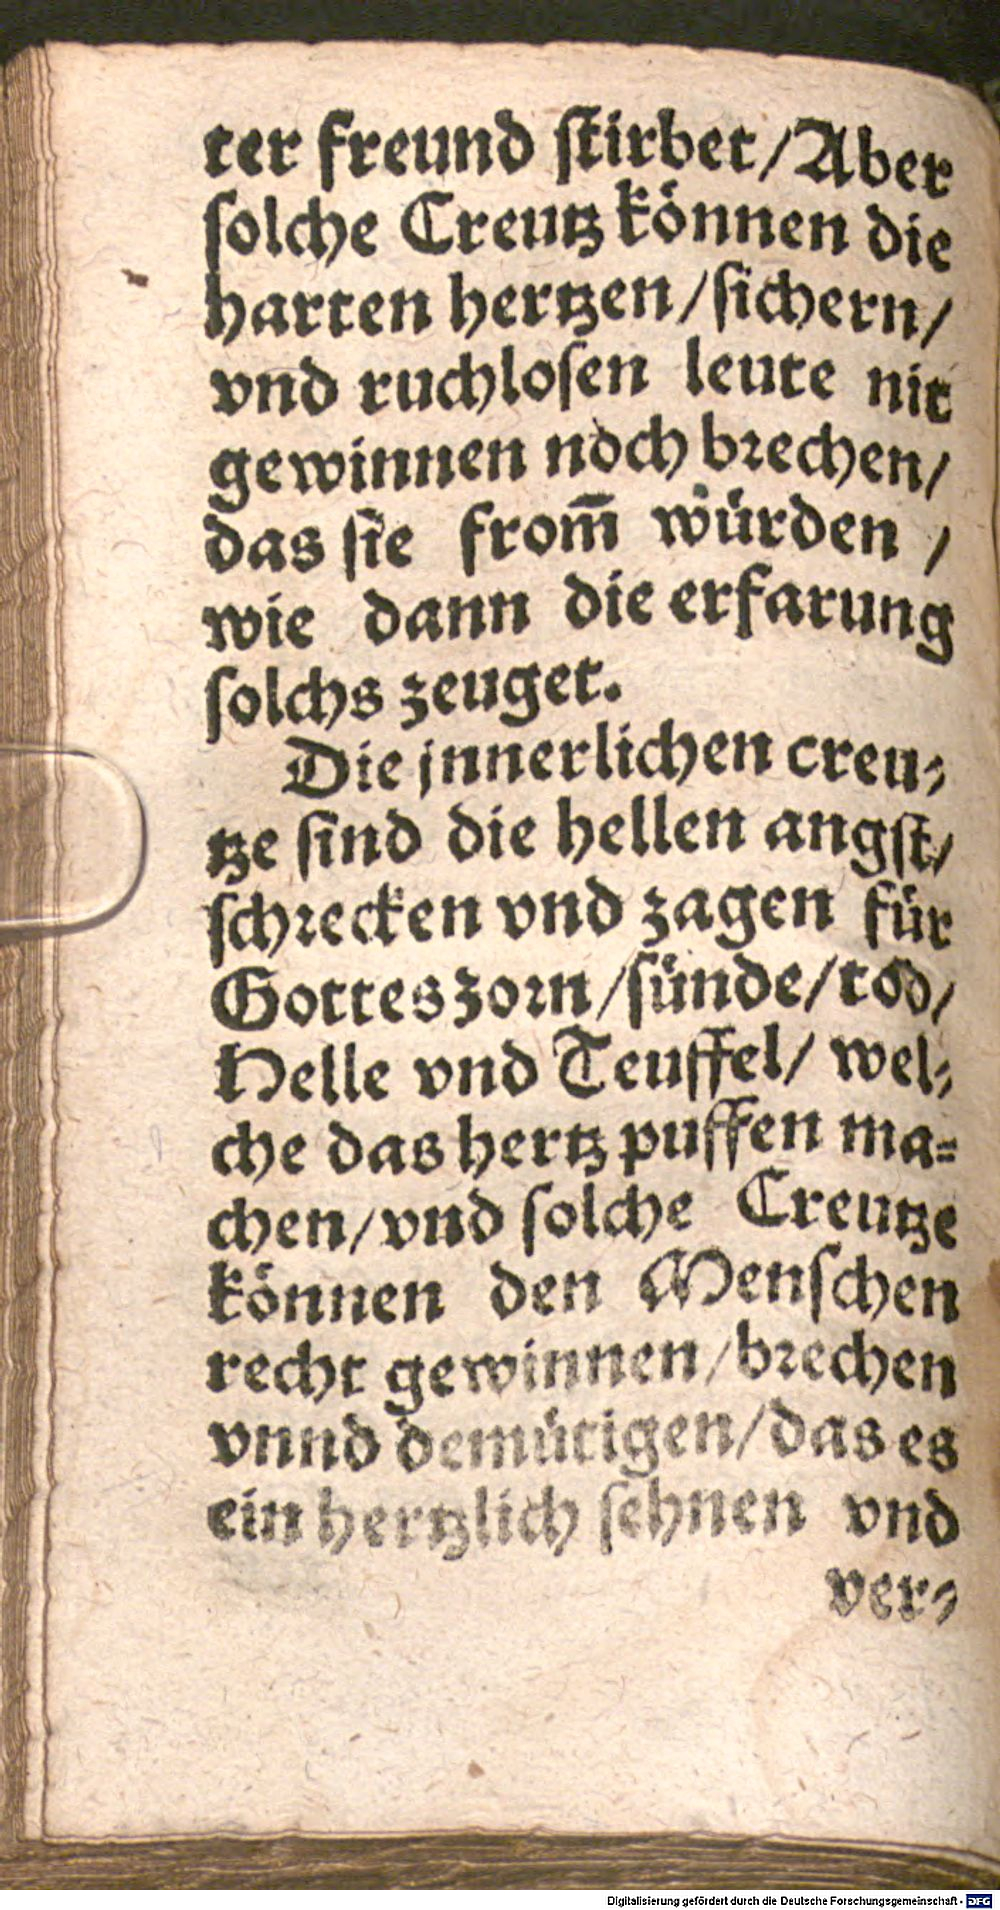 ter freund ſtirbet/Aber
ſolche Creutz können die
harten hertzen/ſichern/
vnd ruchloſen leute nit
gewinnen noch brechen/
das ſie from̃ würden /
wie dann die erfarung
ſolchs zeuget.
Die jnnerlichen creu⸗
tze ſind die hellen angſt/
ſchrecken vnd zagen für
Gottes zorn/ſünde/tod/
Helle vnd Teuffel/ wel⸗
che das hertz puffen ma⸗
chen/vnd ſolche Creutze
können den Menſchen
recht gewinnen/brechen
vnnd demütigen/das es
ein hertzlich ſehnen vnd
ver⸗
Digitalisierung gefördert durch die Deutsche Forschungsgemeinschaft - DFG